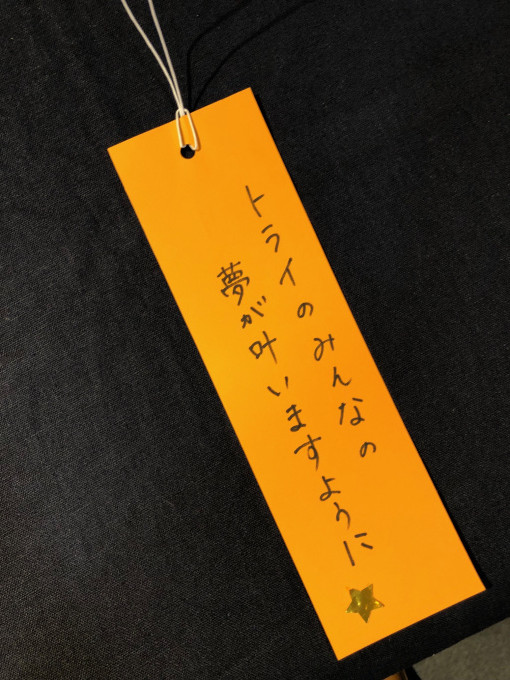 トライのみんなの
夢が叶いますように